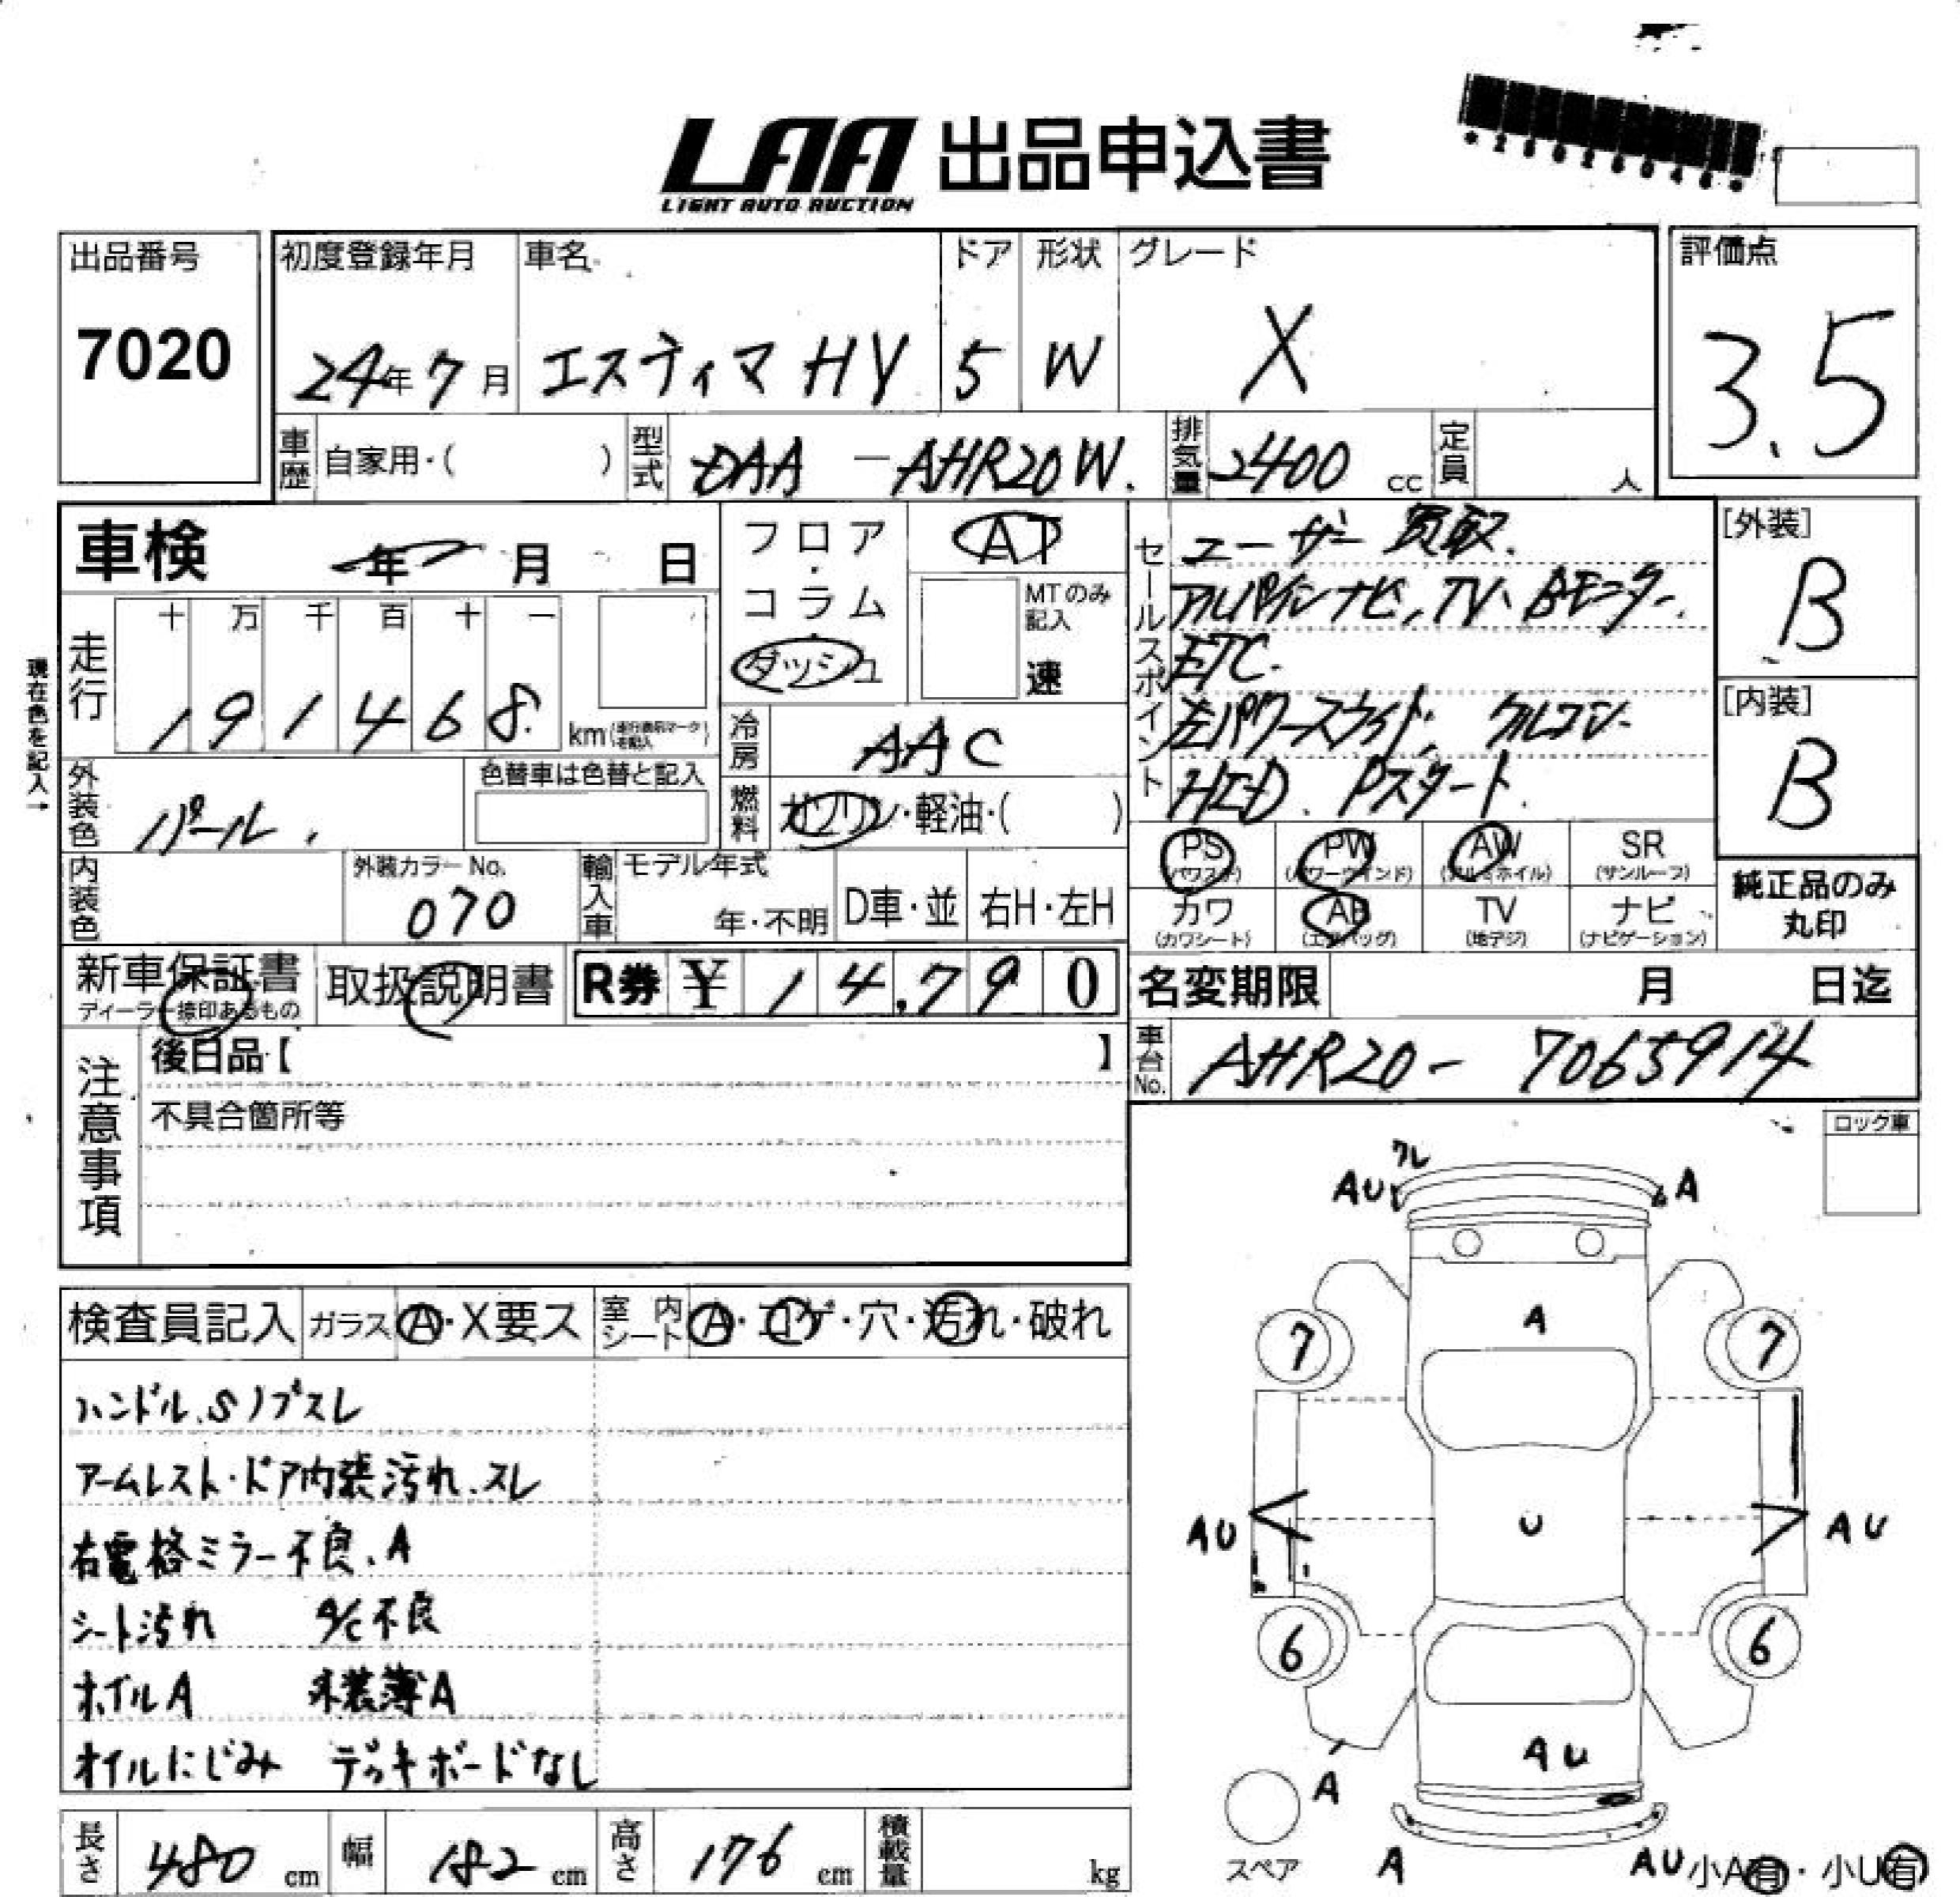 LAA 出品申込書
LIGHT AUTO AUCTION
出品番号
7020
初度登録年月
24年7月
車名
エスティマHV
ドア
5
形状
W
グレード
X
評価点
3.5
車歴 自家用・( )
型式 DAA-AHR20W.
排気量 2400 cc
定員 人
車検 年 月 日
フロア・コラム・ダッシュ
AT
MTのみ記入
速
セールスポイント
ユーザー買取.
アルパインナビ,TV、Bモニター.
ETC.
左パワースライド. クルコン.
HID. Pスタート.
[外装]
B
[内装]
B
現在色を記入→
走行
十 万 千 百 十 一
1 9 1 4 6 8. km
冷房 AAC
外装色 パール.
色替車は色替と記入
燃料 ガソリン・軽油・( )
内装色
外装カラーNo.
070
輸入車 モデル年式
年・不明 D車・並 右H・左H
PS (パワステ) PW (パワーウインド) AW (アルミホイル) SR (サンルーフ)
カワ (カワシート) AB (エアバッグ) TV (地デジ) ナビ (ナビゲーション)
純正品のみ
丸印
新車保証書
ディーラー捺印あるもの
取扱説明書
R券 ¥ 14,790
名変期限 月 日迄
車台No. AHR20-7065914
注意事項
後日品【 】
不具合箇所等
ロック車
ワレ
AU A
A
7 7
AU U AU
6 6
AU
A
スペア A AU 小A有・小U有
検査員記入 ガラス A・X要ス 室内シート A・コゲ・穴・汚れ・破れ
ハンドル.Sノブスレ
アームレスト・ドア内張汚れ.スレ
右電格ミラー不良.A
シート汚れ A/C不良
ホイルA 木装薄A
オイルにじみ デッキボードなし
長さ 480 cm 幅 182 cm 高さ 176 cm 積載量 kg